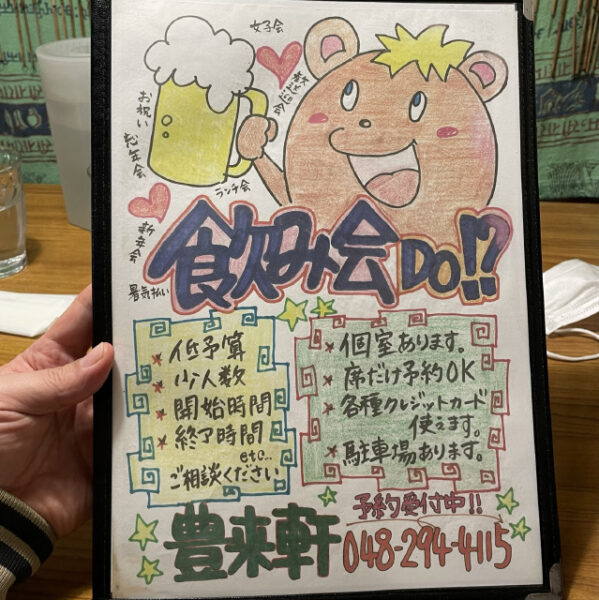 女子会
歓送迎会
お祝い
忘年会
ランチ会
新年会
暑気払い
飲み会DO!?
★低予算
★少人数
★開始時間
★終了時間
etc...
ご相談ください
★個室あります。
★席だけ予約OK
★各種クレジットカード
使えます。
★駐車場あります。
予約受付中!!
豊来軒
048-294-4115